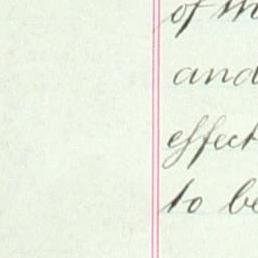 of
and
effect
to be